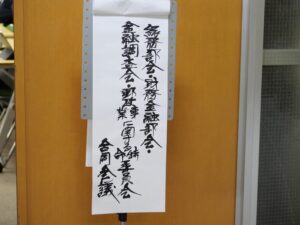 総務部会・財務金融部会・
金融調査会・郵政事業に関する特命委員会
合同会議